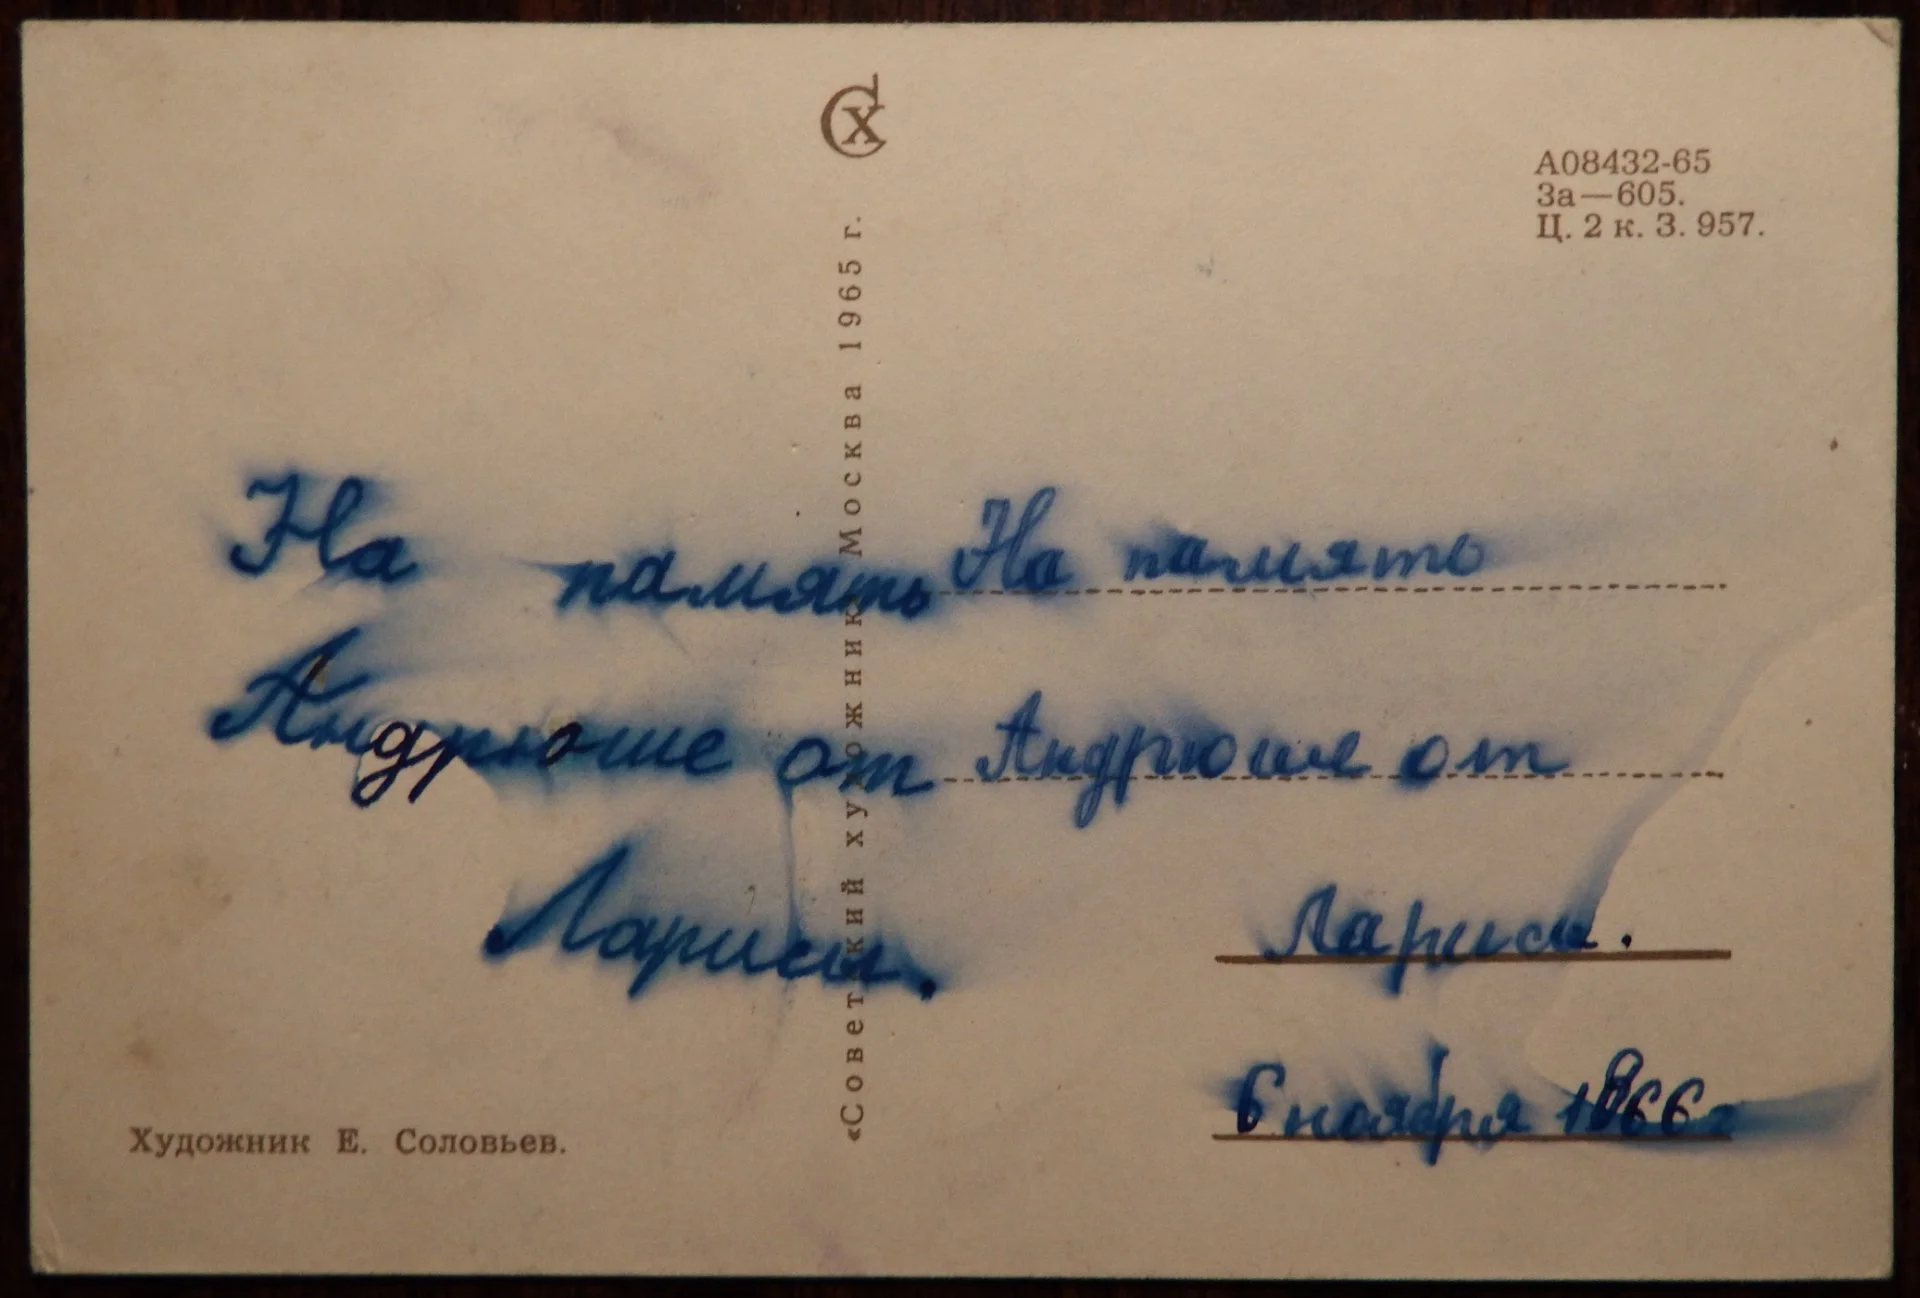 СХ
А08432-65
За—605.
Ц. 2 к. З. 957.
На память
Андрюше от
Ларисы.
На память
Андрюше от
Ларисы.
6 ноября 1966 г
«Советский художник» Москва 1965 г.
Художник Е. Соловьев.